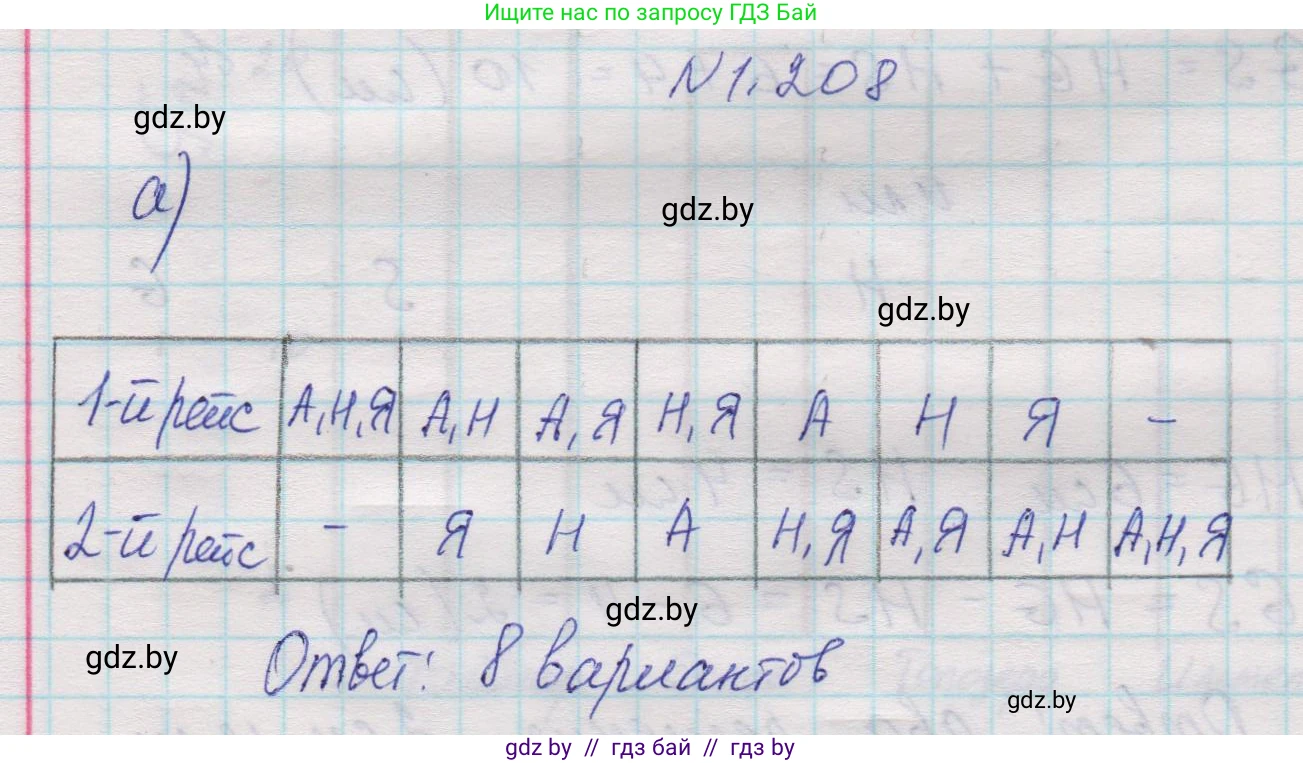 Ищите нас по запросу ГДЗ Бай
N 1.208
gdz.by
а)
gdz.by
gdz.by
1-й рейс А,Н,Я А,Н А,Я Н,Я А Н Я –
2-й рейс – Я Н А Н,Я А,Я А,Н А,Н,Я
gdz.by
Ответ: 8 вариантов
gdz.by
gdz.by
gdz by // гдз бай // гдз by